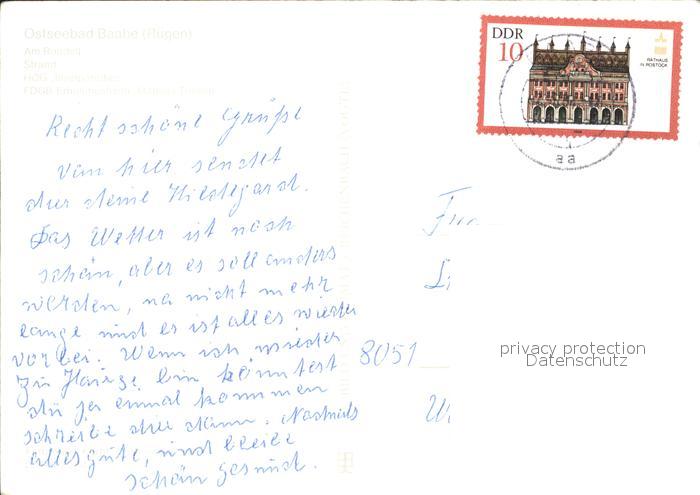 Ostseebad Baabe (Rügen)
Am Rondell
Strand
HOG
FDGB-Erholungsheim
DDR
10
RATHAUS
IN ROSTOCK
aa
Recht schöne Grüße
von hier sendet
dir deine Hildegard.
Das Wetter ist noch
schön, aber es soll anders
werden, na nicht mehr
lange und es ist alles wieder
vorbei. Wenn ich wieder
zu Hause bin könntest
du ja einmal kommen
schreibe dir dann. Nochmals
alles gute, und bleibe
schön gesund.
8051
privacy protection
Datenschutz